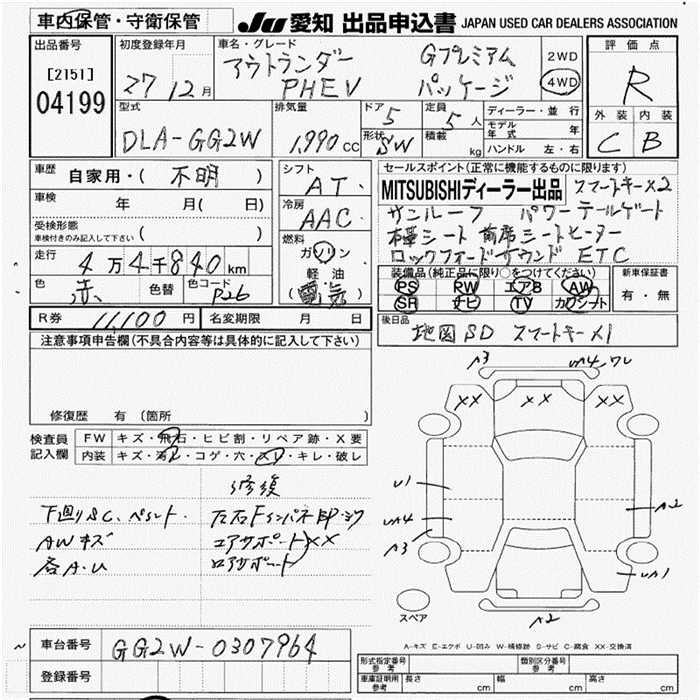 車内保管・守衛保管
JU 愛知 出品申込書 JAPAN USED CAR DEALERS ASSOCIATION
出品番号
[2151]
04199
初度登録年月
27 12月
車名・グレード
アウトランダー Gプレミアム
PHEV パッケージ
2WD
4WD
評価点
R
外装 内装
C B
型式
DLA-GG2W
排気量
1,990cc
ドア 5
形状 SW
定員 5人
積載 kg
ディーラー・並行
モデル年式 年
ハンドル 左・右
車歴 自家用・( 不明 )
車検 年 月( 日)
受検形態
車検付きのみ記入して下さい ( )
走行 4万4千840km
色 赤 色替 色コード P26
シフト
AT
冷房
AAC
燃料
ガソリン
軽油
(電気)
セールスポイント(正常に機能するものに限ります)
MITSUBISHIディーラー出品 スマートキー×2
サンルーフ パワーテールゲート
本革シート 前席シートヒーター
ロックフォードサウンド ETC
装備品(純正品に限り○をつけてください)
PS PW エアB AW
SR ナビ TV カワシート
新車保証書
有・無
R券 11,100円 名変期限 月 日
後日品 地図SD スマートキー×1
注意事項申告欄(不具合内容等は具体的に記入して下さい)
修復歴 有(箇所
検査員
記入欄
FW キズ・飛石・ヒビ割・リペア跡・X要
内装 キズ・汚レ・コゲ・穴・スレ・キレ・破レ
修復
下廻りSC、ペイント. 左右Fインパネ
AWキズ コアサポート××
各A.U ロアサポート
A3 UA4 ワレ
×× ×× ××
U1
UA4
A3
A2
UA1
A2
スペア
A-キズ E-エクボ U-凹み W-補修跡 S-サビ C-腐食 XX-交換済
車台番号 GG2W-0307964
登録番号
形式指定番号 参考
類別区分番号 参考
車庫証明用 参考 長さ cm 幅 cm 高さ cm